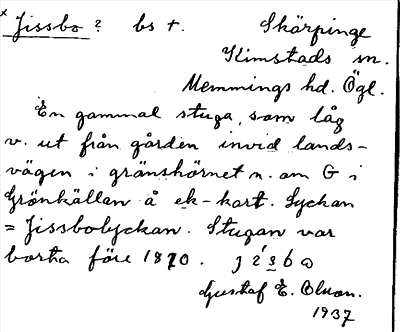 × Jissbo ? bs †. Skärpinge
Kimstads sn.
Memmings hd. Ögl.
En gammal stuga, som låg
v. ut från gården invid lands-
vägen i gränshörnet n. om G i
Grönkällan å ek-kart. Lyckan
= Jissbolyckan. Stugan var
borta före 1870.
Gustaf E. Olson.
1937